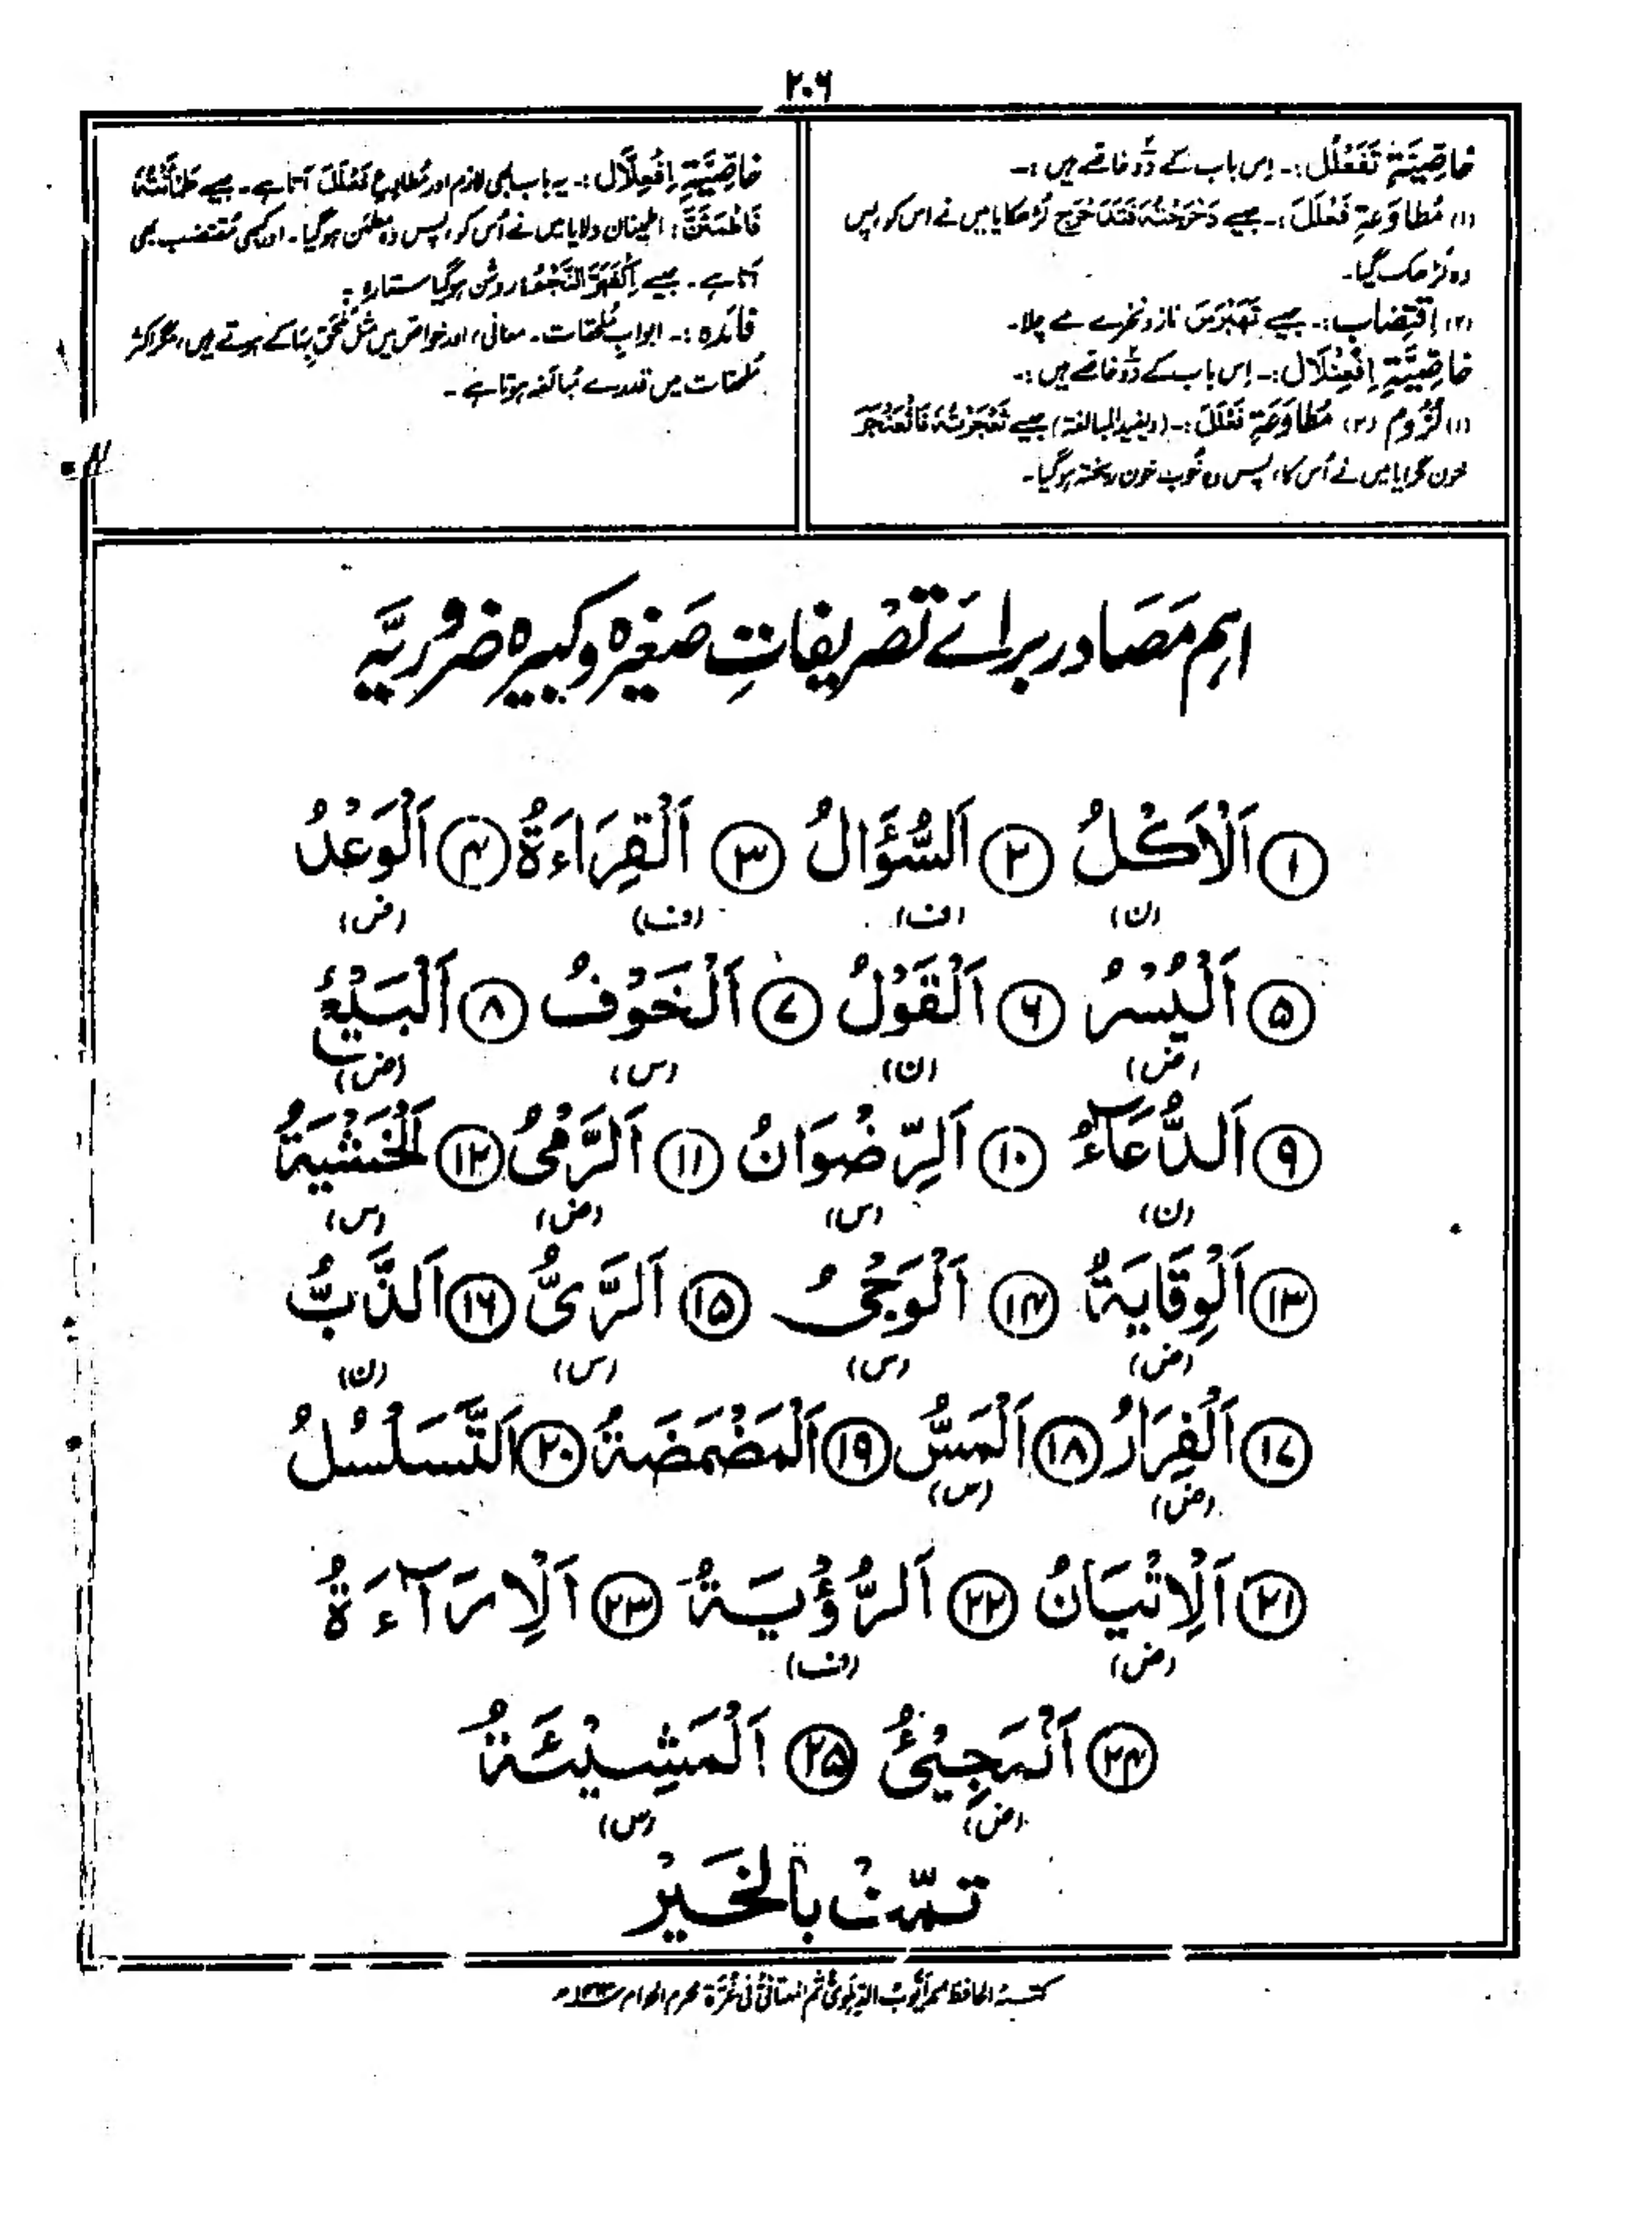 ۲۰۶
خاصِّیَّۃِ تَفَعْلُل:۔ اِس باب کے دُو خاصّے ہیں :۔
(۱) مُطاوَعَۃِ فَعْلَلَ:۔ جیسے دَحْرَجْتُہٗ فَتَدَحْرَجَ لُڑھکایا میں نے اس کو، پس
وہ لُڑھک گیا۔
(۲) اِقتِضاب:۔ جیسے تَهَبْرَسَ ناز و نخرے سے چلا۔
خاصِّیَّۃِ اِفْعِنْلَال:۔ اِس باب کے دُو خاصّے ہیں :۔
(۱) لُزُوم (۲) مُطاوَعَۃِ فَعْلَلَ:۔ (ویفید المبالغۃ) جیسے ثَعْجَرْتُہٗ فَاثْعَنْجَرَ
خون گرایا میں نے اُس کا، پس وہ خُوب خون ریختہ ہوگیا۔
خاصِّیَّۃِ اِفْعِلَّال:۔ یہ باب بھی لازم اور مُطاوِع فَعْلَلَ آتا ہے۔ جیسے طَمْأَنْتُہٗ
فَاطْمَئَنَّ: اطمینان دلایا میں نے اُس کو، پس وہ مطمئن ہوگیا۔ اور کبھی مُقتضَب بھی
آتا ہے۔ جیسے اِکْفَهَرَّ النَّجْمُ: روشن ہوگیا ستارہ :
فائدہ :۔ ابوابِ مُلحقات۔ معانی، اور خواص میں مثل مُلحَق بِہا کے ہوتے ہیں، مگر اکثر
مُلحقات میں قدرے مُبالغہ ہوتا ہے۔
اہم مَصَادر برائے تصْریفاتِ صَغیرہ وکبیرہ ضروریَّہ
۱ اَلْاَكْلُ ۲ اَلسُّؤَالُ ۳ اَلْقِرَاءَةُ ۴ اَلْوَعْدُ
(ن) (ف) (ف) (ض)
۵ اَلْيُسْرُ ۶ اَلْقَوْلُ ۷ اَلْخَوْفُ ۸ اَلْبَيْعُ
(ض) (ن) (س) (ض)
۹ اَلدُّعَآءُ ۱۰ اَلرِّضْوَانُ ۱۱ اَلرَّمْیُ ۱۲ اَلْخَشْيَةُ
(ن) (س) (ض) (س)
۱۳ اَلْوِقَايَةُ ۱۴ اَلْوَجْیُ ۱۵ اَلرَّیُّ ۱۶ اَلذَّبُّ
(ض) (س) (س) (ن)
۱۷ اَلْفِرَارُ ۱۸ اَلْمَسُّ ۱۹ اَلْمَضْمَضَةُ ۲۰ اَلتَّسَلْسُلُ
(ض) (س)
۲۱ اَلْاِتْيَانُ ۲۲ اَلرُّؤْيَةُ ۲۳ اَلْاِرَآءَةُ
(ض) (ف)
۲۴ اَلْمَجِيْئُ ۲۵ اَلْمَشِيْئَةُ
(ض) (س)
تمّت بالخَیْر
کتبہ الحافظ محمد اَیُّوبُ الدِّہلَوِیُّ ثُمَّ المُلتانیُّ فی غُرَّۃِ محرم الحرام